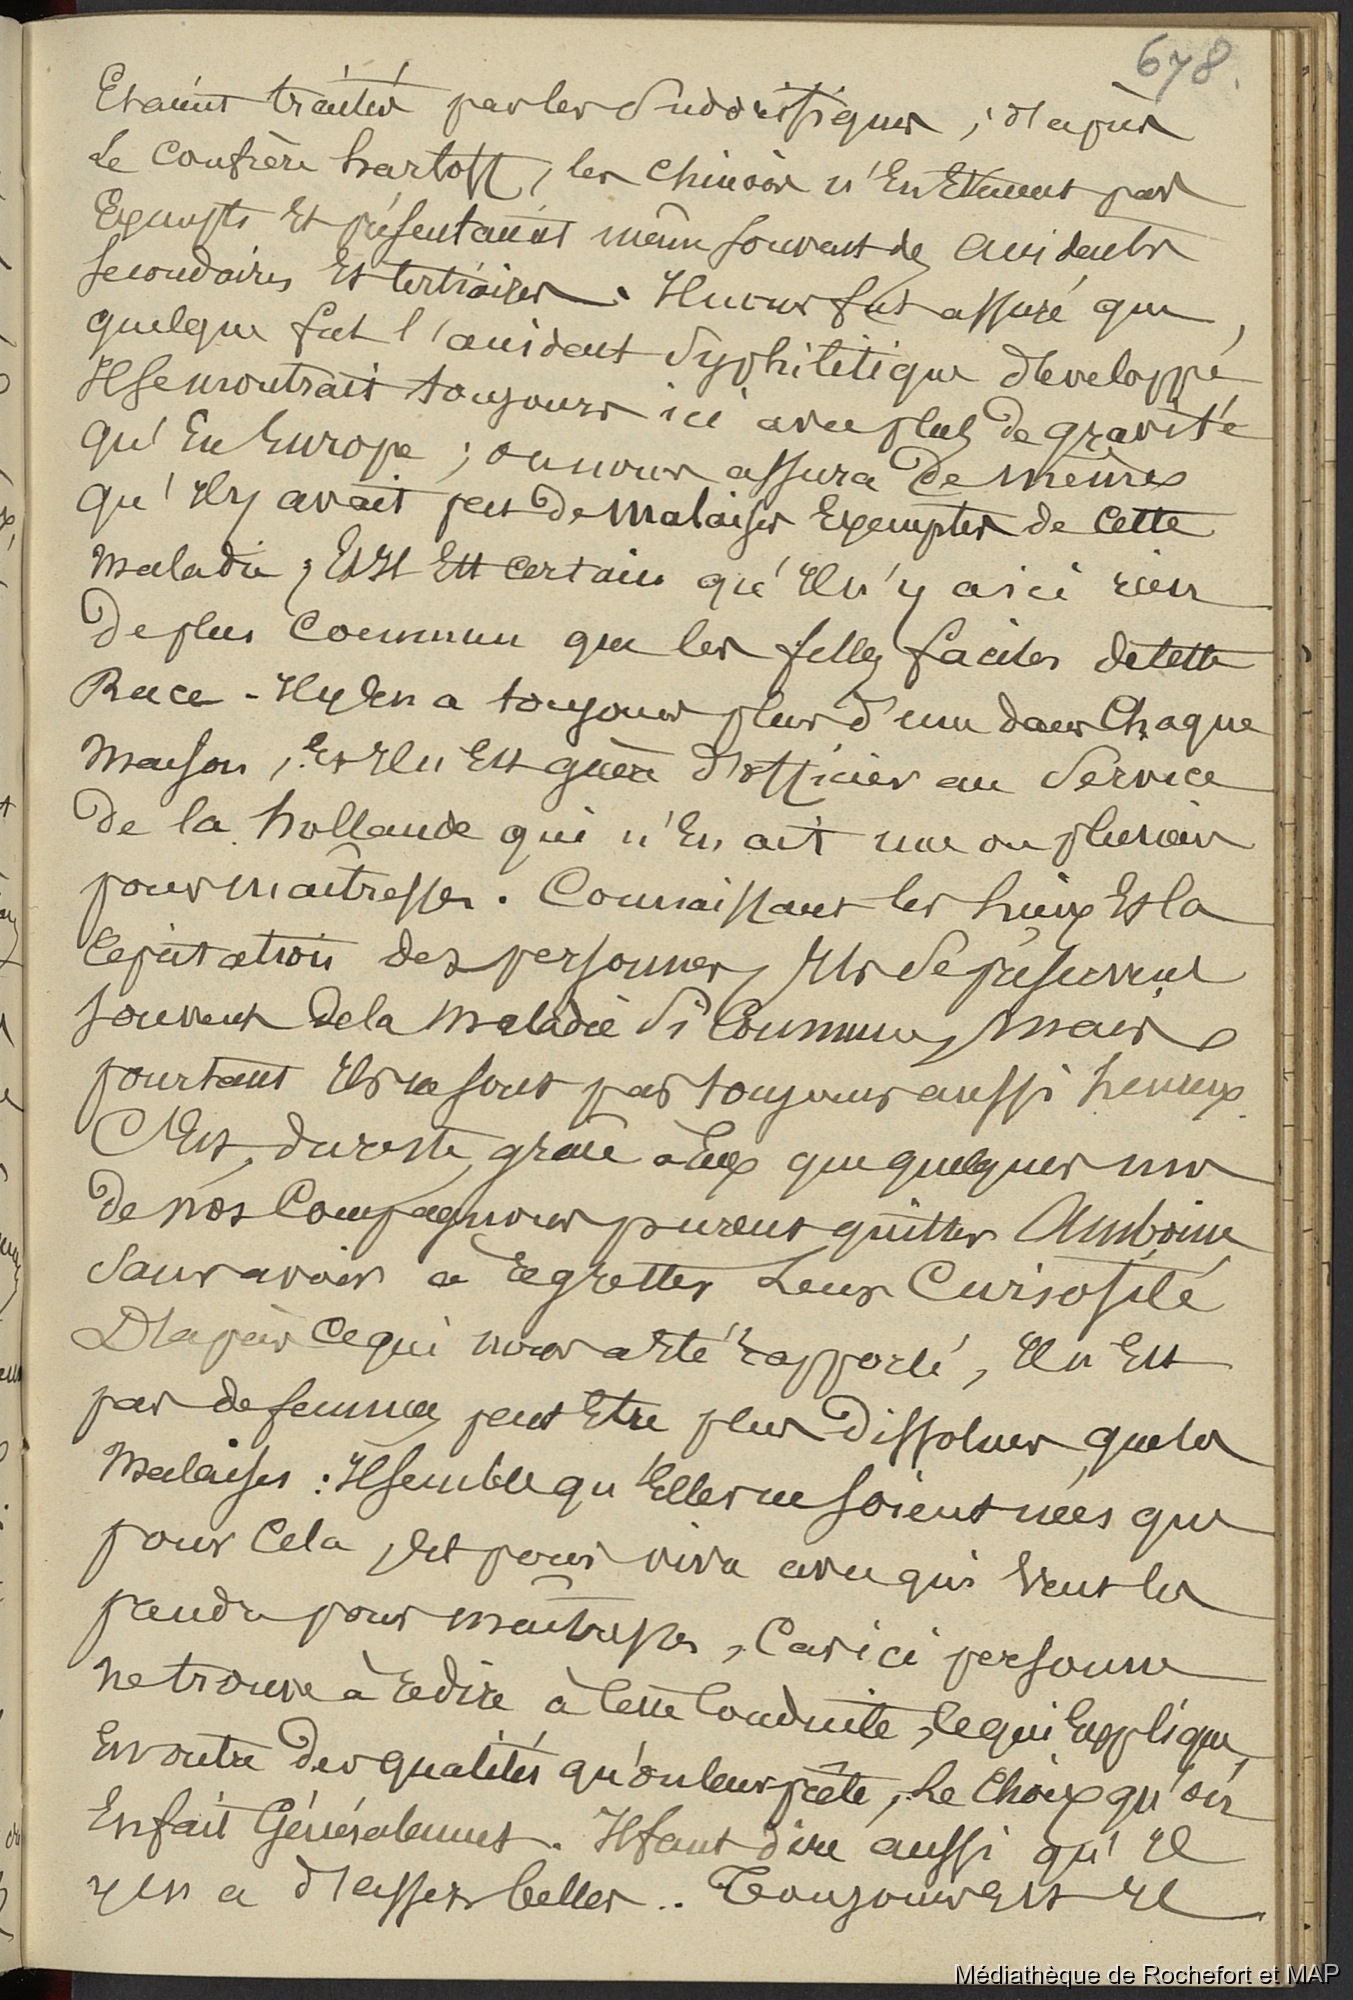 678.
Etaient traités par les Sudorifiques ; d'après
Le Confrère hartoff, les chinois n'En Etaient pas
Exempts Et présentaient même souvent des accidents
secondaires Et tertiaires. Il nous fut assuré que,
quelque fut l'accident Syphilitique développé
Il se montrait toujours ici avec plus de gravité
qu'En Europe ; on nous assura de mêmes
qu'Il y avait peu de malaises Exemptes de cette
maladie, Et Il Est certain qu'Il n'y a ici rien
De plus Commun que les filles faciles de cette
Race - Il y En a toujours plus d'une dans Chaque
maison, Et Il n'Est guère d'officier au Service
De la hollande qui n'En ait une ou plusieurs
pour maîtresses. Connaissant les lieux Et la
réputation des personnes, Ils se préservent
souvent de la maladie si Commune, mais
pourtant Ils ne sont pas toujours aussi heureux
C'Est, du reste, grâce à Eux que quelques uns
De nos Compagnons purent quitter Amboine
Sans avoir à regretter Leur Curiosité
D'après ce qui nous a Eté rapporté, Il n'Est
pas de femmes peut Etre plus Dissolues que les
Malaises : Il semble qu'Elles ne soient nées que
pour Cela, Et pour vivre avec qui veut les
prendre pour maîtresses, Car ici personne
ne trouve à redire à cette Conduite, ce qui Explique,
En outre des qualités qu'on leur prête, Le Choix qu'on
En fait Généralement. Il faut dire aussi qu'Il
y En a d'assez belles .. Toujours Est Il
Médiathèque de Rochefort et MAP